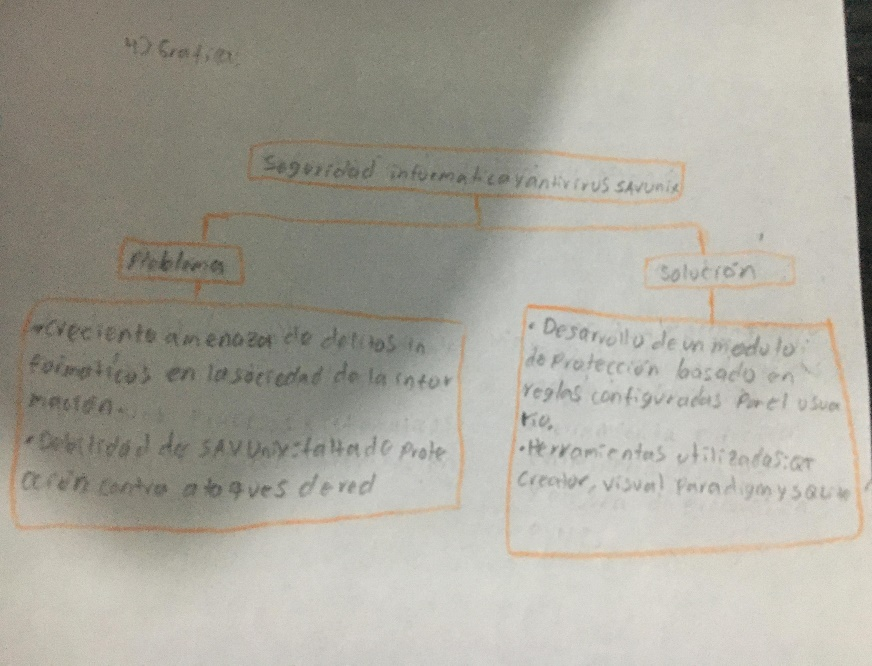 4) Grafica
Seguridad informatica y antivirus SAVUnix
Problema
Solución
• Creciente amenazar de delitos in
formaticos en la sociedad de la infor
mación.
• Debilidad de SAVUnix: falta de Prote
cción contra ataques de red
• Desarrollo de un modulo
de Protección basado en
reglas configuradas por el usua
rio.
• Herramientas utilizadas: QT
Creator, visual Paradigm y